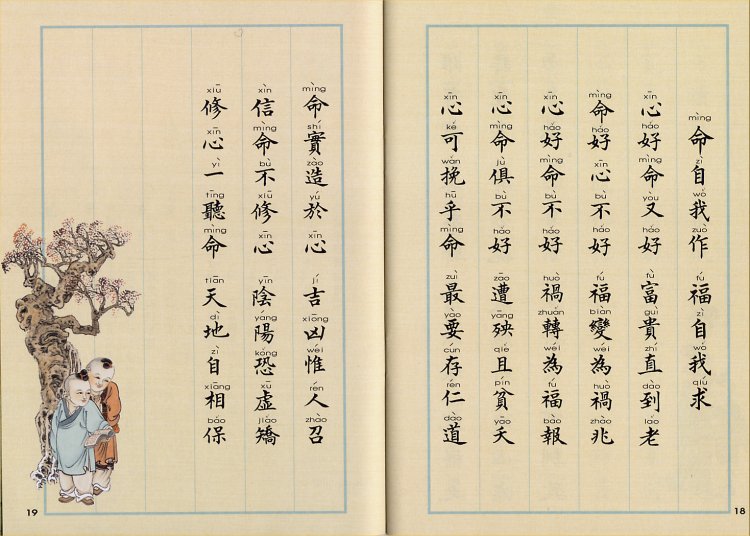 mìng 命 zì 自 wǒ 我 zuò 作 fú 福 zì 自 wǒ 我 qiú 求
xīn 心 hǎo 好 mìng 命 yòu 又 hǎo 好 fù 富 guì 貴 zhí 直 dào 到 lǎo 老
mìng 命 hǎo 好 xīn 心 bù 不 hǎo 好 fú 福 biàn 變 wéi 為 huò 禍 zhào 兆
xīn 心 hǎo 好 mìng 命 bù 不 hǎo 好 huò 禍 zhuǎn 轉 wéi 為 fú 福 bào 報
xīn 心 mìng 命 jù 俱 bù 不 hǎo 好 zāo 遭 yāng 殃 qiě 且 pín 貧 yāo 夭
xīn 心 kě 可 wǎn 挽 hū 乎 mìng 命 zuì 最 yào 要 cún 存 rén 仁 dào 道
18
mìng 命 shí 實 zào 造 yú 於 xīn 心 jí 吉 xiōng 凶 wéi 惟 rén 人 zhào 召
xìn 信 mìng 命 bù 不 xiū 修 xīn 心 yīn 陰 yáng 陽 kǒng 恐 xū 虛 jiǎo 矯
xiū 修 xīn 心 yì 一 tīng 聽 mìng 命 tiān 天 dì 地 zì 自 xiāng 相 bǎo 保
19